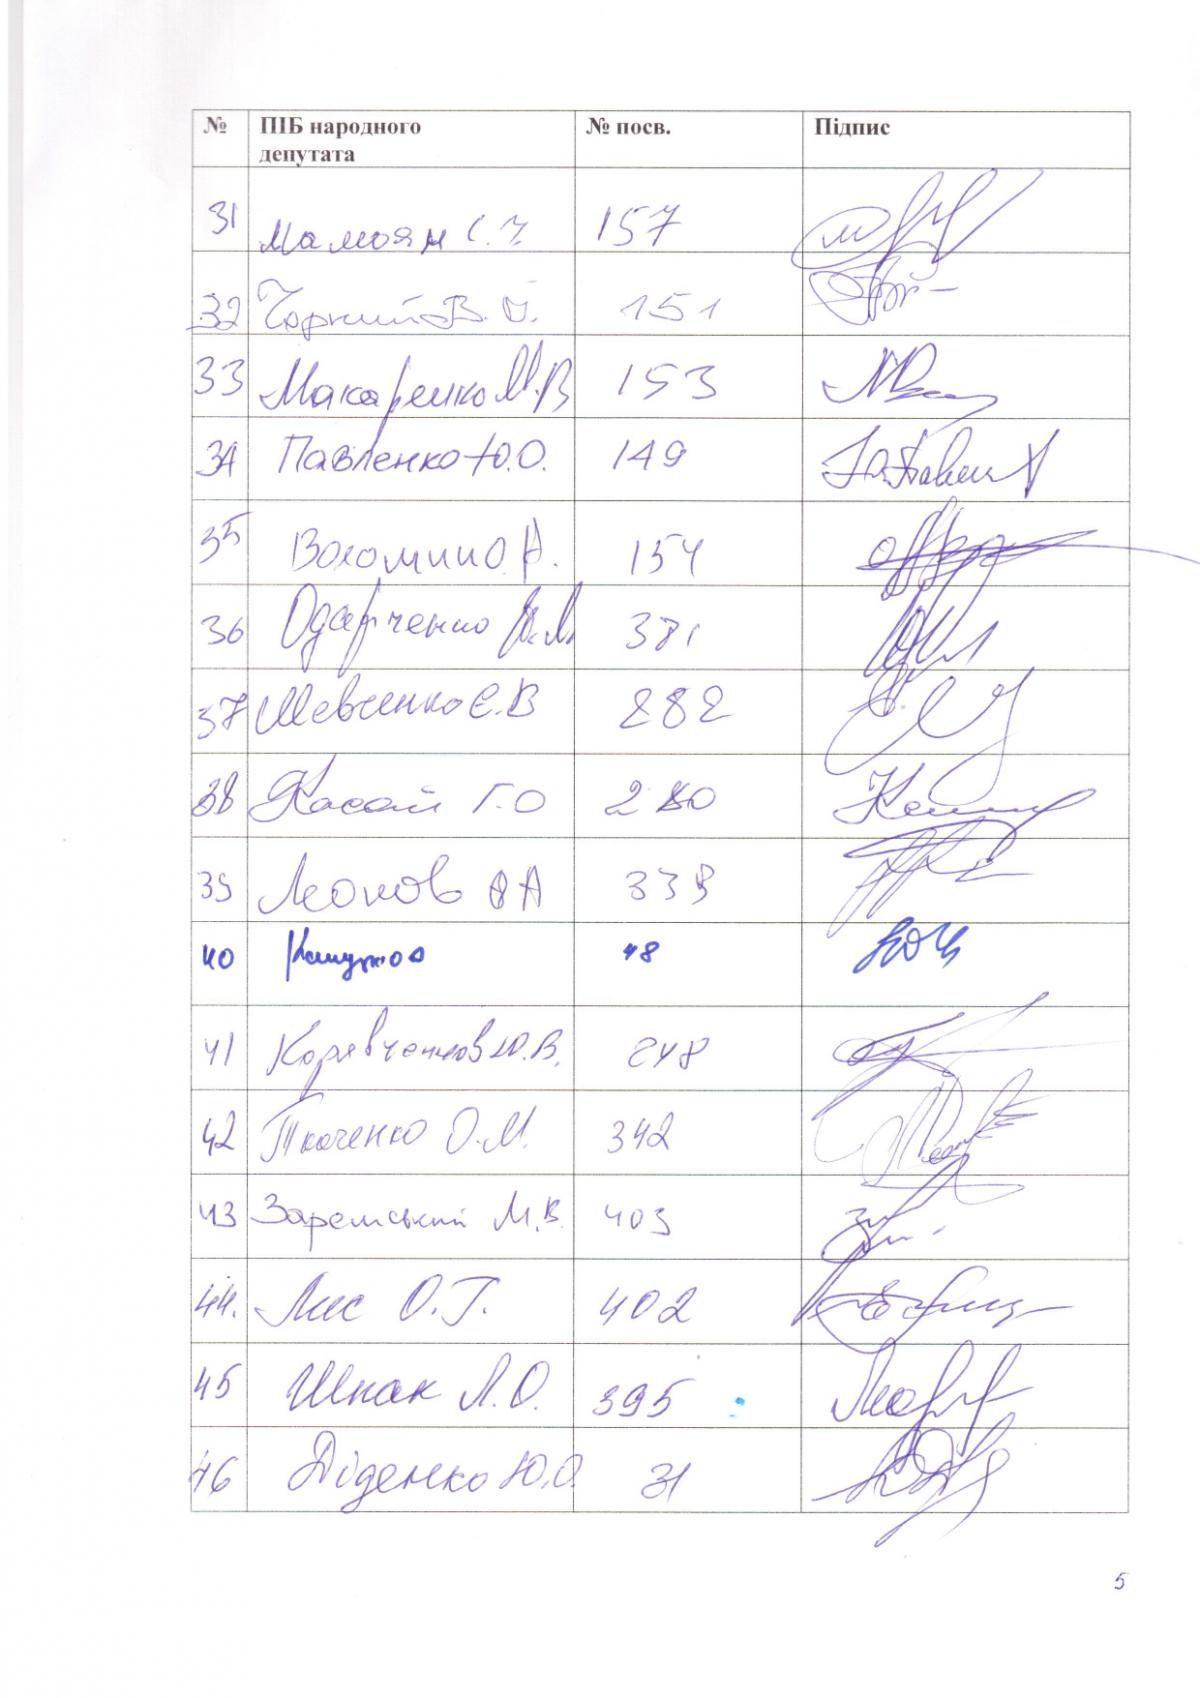 № ПІБ народного депутата № посв. Підпис
31 Мамоян С.Ч. 157
32 Чорний В.І. 151
33 Макаренко М.В 153
34 Павленко Ю.О. 149
35 154
36 Одарченко 381
37 Шевченко Є.В 282
38 Касай Г.О 280
39 Леонов О А 339
40 48
41 Ю.В. 248
42 Ткаченко О.М. 342
43 Заремський М.В. 403
44. Лис О.Г. 402
45 Шпак Л.О. 395
46 Діденко Ю.О. 31
5